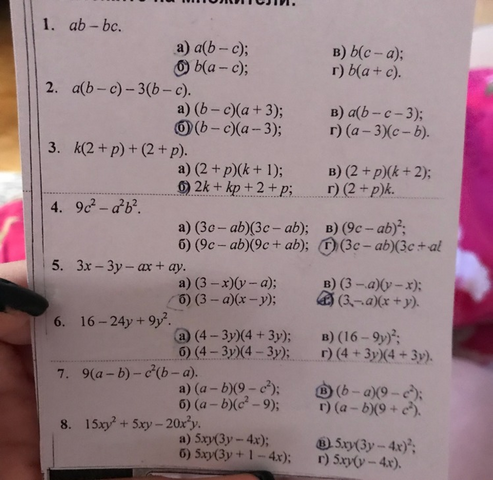 множители.
1. ab – bc.
а) a(b – c); в) b(c – a);
б) b(a – c); г) b(a + c).
2. a(b – c) – 3(b – c).
а) (b – c)(a + 3); в) a(b – c – 3);
б) (b – c)(a – 3); г) (a – 3)(c – b).
3. k(2 + p) + (2 + p).
а) (2 + p)(k + 1); в) (2 + p)(k + 2);
б) 2k + kp + 2 + p; г) (2 + p)k.
4. 9c² – a²b².
а) (3c – ab)(3c – ab); в) (9c – ab)²;
б) (9c – ab)(9c + ab); г) (3c – ab)(3c + ab
5. 3x – 3y – ax + ay.
а) (3 – x)(y – a); в) (3 – a)(y – x);
б) (3 – a)(x – y); г) (3 – a)(x + y).
6. 16 – 24y + 9y².
а) (4 – 3y)(4 + 3y); в) (16 – 9y)²;
б) (4 – 3y)(4 – 3y); г) (4 + 3y)(4 + 3y).
7. 9(a – b) – c²(b – a).
а) (a – b)(9 – c²); в) (b – a)(9 – c²);
б) (a – b)(c² – 9); г) (a – b)(9 + c²).
8. 15xy² + 5xy – 20x²y.
а) 5xy(3y – 4x); в) 5xy(3y – 4x)²;
б) 5xy(3y + 1 – 4x); г) 5xy(y – 4x).